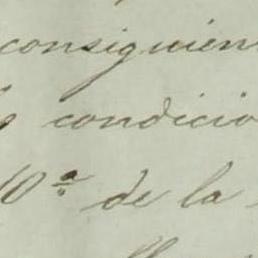 consiguien
condicio
10ª de la